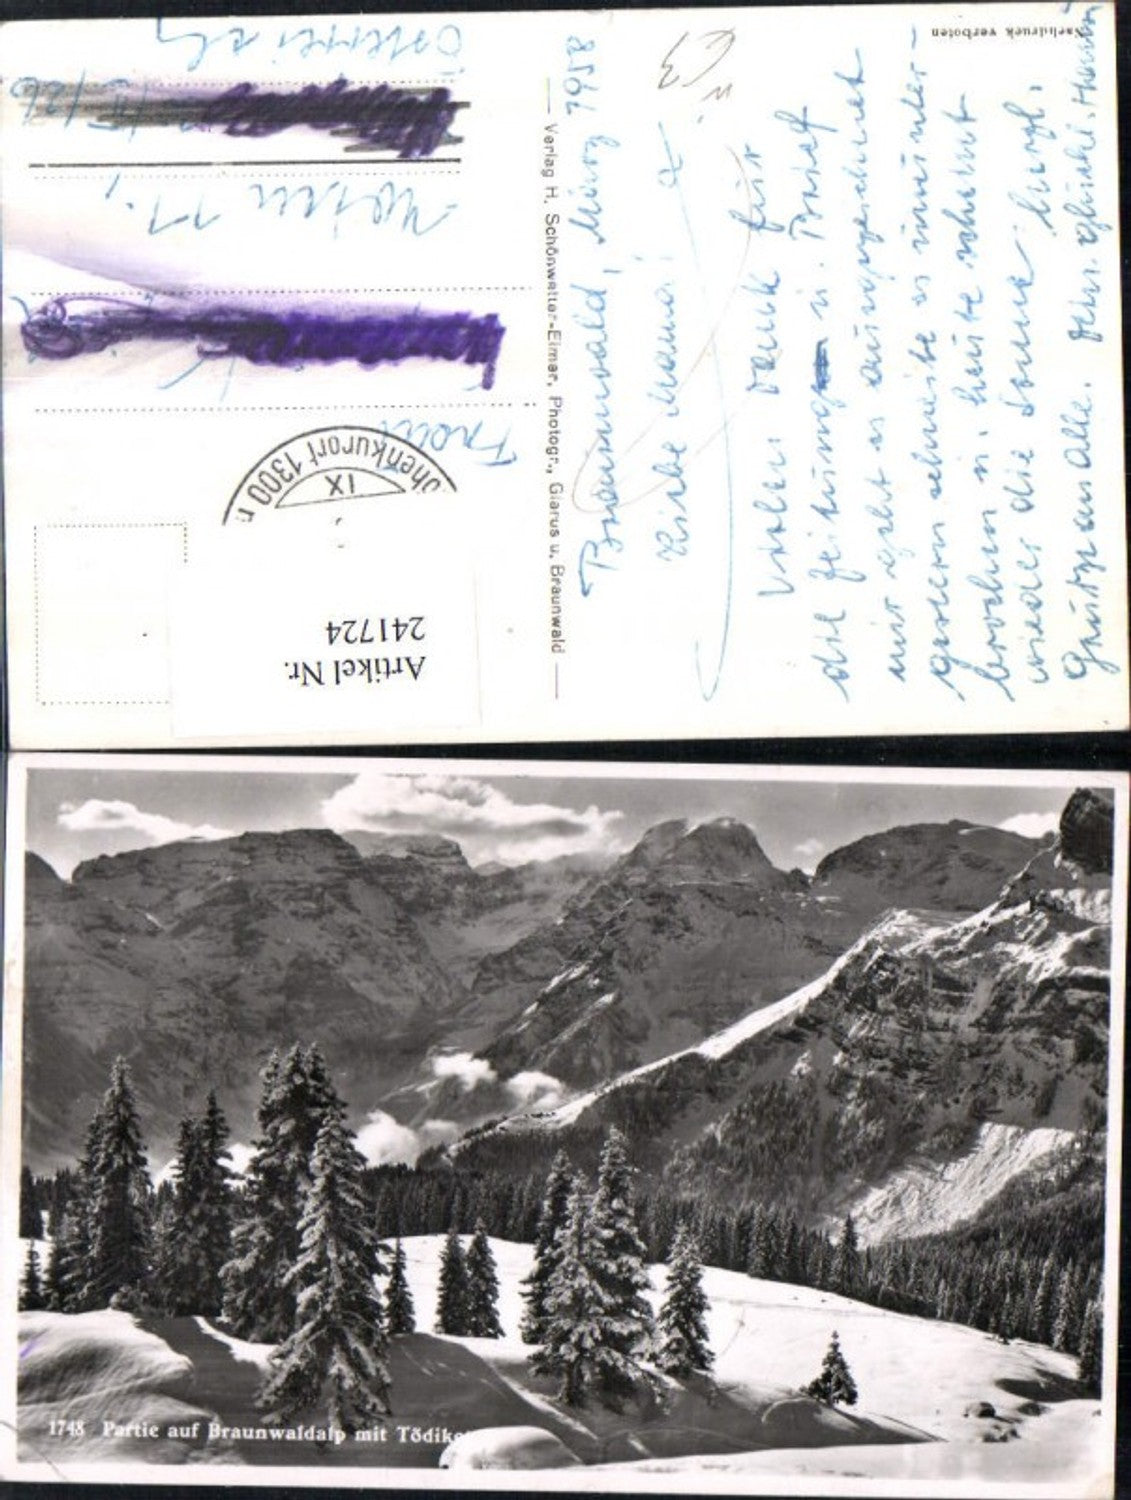 Braunwald, März 1958
Liebe Mama!
Vielen Dank für
die Zeitungen u. Brief
mir geht es ausgezeichnet
gestern schneite es ununter-
brochen u. heute scheint
wieder die Sonne. herzl.
Grüße an alle. Dein
Nachdruck verboten
Verlag H. Schönwetter-Elmer, Photogr., Glarus u. Braunwald
Frau
Wien
Österreich
Höhenkurort 1300 m
IX
Artikel Nr.
241724
1748 Partie auf Braunwaldalp mit